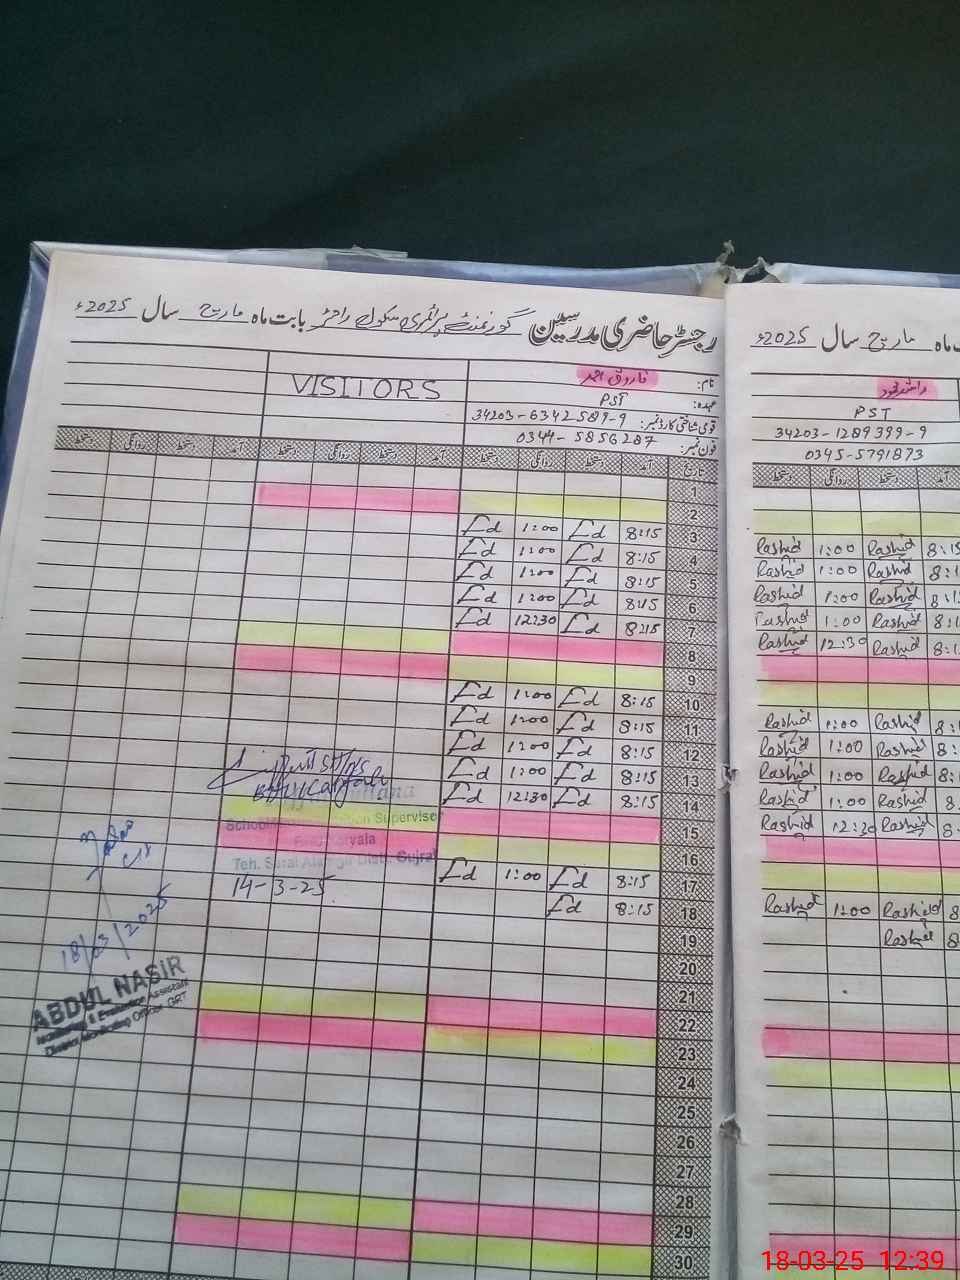 رجسٹر حاضری مدرسین گورنمنٹ پرائمری سکول بابت ماہ مارچ سال 2025ء
نام: فاروق احمد
عہدہ: PST
قومی شناختی کارڈ نمبر: 34203-6342589-9
فون نمبر: 0344-5856287
VISITORS
تاریخ آمد دستخط روانگی دستخط آمد دستخط روانگی دستخط آمد دستخط روانگی دستخط
1
2
3 8:15 Fd 1:00 Fd
4 8:15 Fd 1:00 Fd
5 8:15 Fd 1:00 Fd
6 8:15 Fd 1:00 Fd
7 8:15 Fd 12:30 Fd
8
9
10 8:15 Fd 1:00 Fd
11 8:15 Fd 1:00 Fd
12 8:15 Fd 1:00 Fd
13 8:15 Fd 1:00 Fd
14 8:15 Fd 12:30 Fd
15
16
17 8:15 Fd 1:00 Fd
18 8:15 Fd
19
20
21
22
23
24
25
26
27
28
29
30
Supervisor
Teh. Sarai Alamgir Distt. Gujrat
14-3-25
18/03/2025
ABDUL NASIR
Monitoring & Evaluation Assistant
District Monitoring Officer GRT
ماہ مارچ سال 2025ء
راشد محمود
PST
34203-1289399-9
0345-5791873
آمد دستخط روانگی دستخط
8:15 Rashid 1:00 Rashid
8:1 Rashid 1:00 Rashid
8:1 Rashid 1:00 Rashid
8:1 Rashid 1:00 Rashid
8:1 Rashid 12:30 Rashid
8: Rashid 1:00 Rashid
8: Rashid 1:00 Rashid
8: Rashid 1:00 Rashid
8: Rashid 1:00 Rashid
8: Rashid 12:30 Rashid
8 Rashid 1:00 Rashid
8 Rashid
18-03-25 12:39